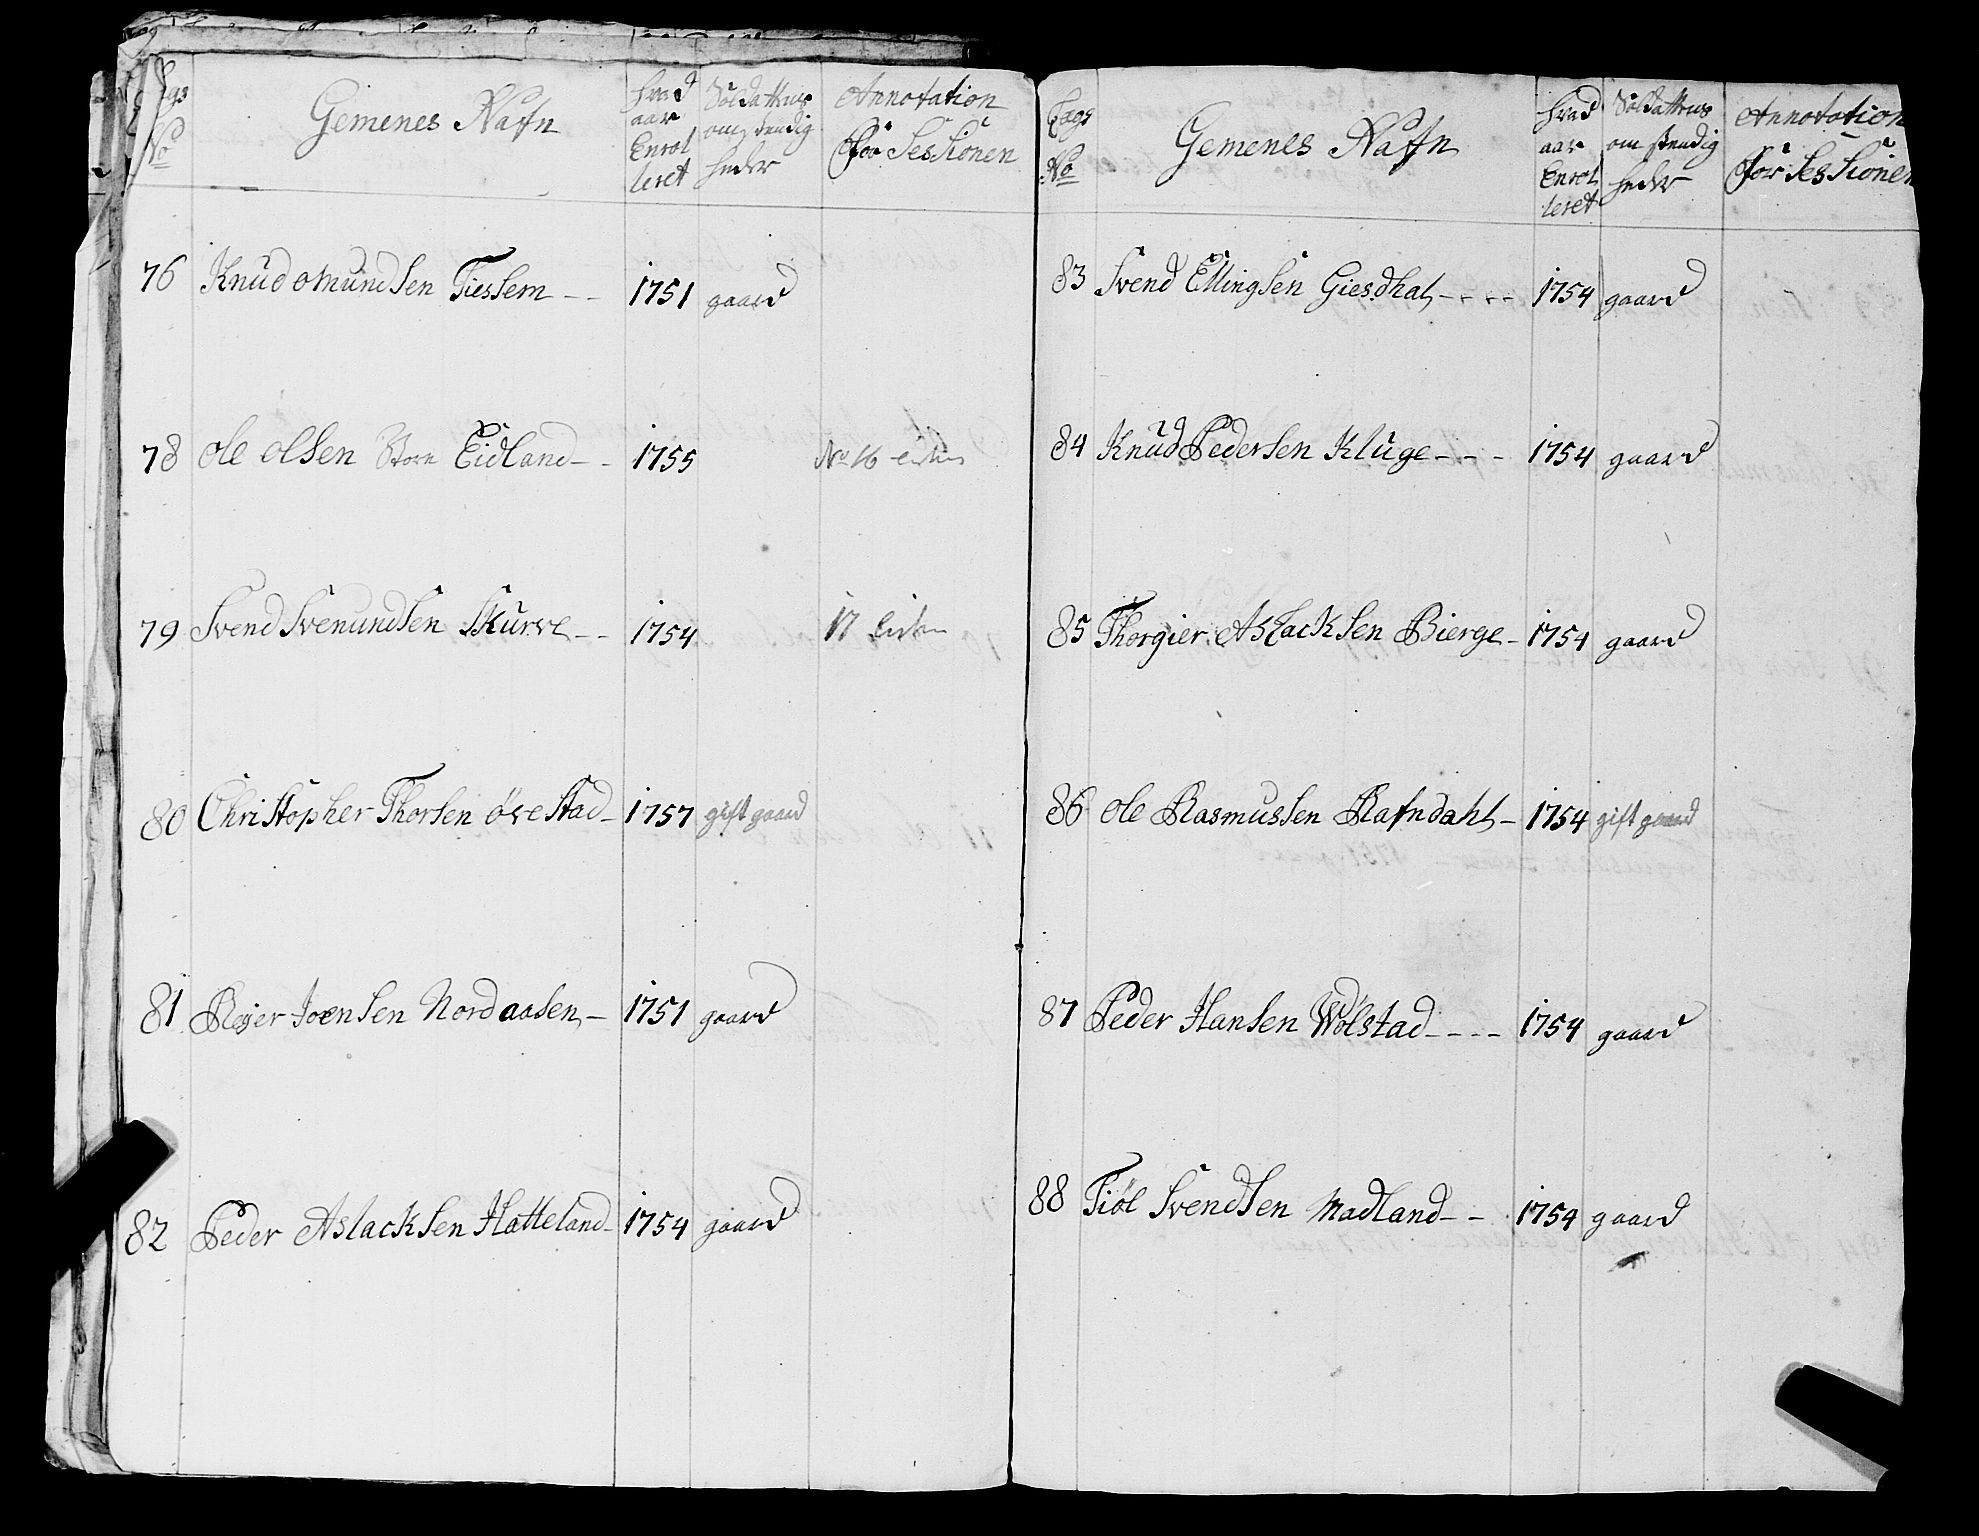 Lægs No | Gemenes Nafn | hvad aar Enrol leret | Soldatterns omstendig heder | Annotation For Sessionen
76 Knud omundsen Tiessem -- 1751 gaard
78 ole olsen Store Eidland -- 1755 No 16
79 Svend Svenundsen Skurve -- 1754 17
80 Christopher Thorsen övestad - 1757 gift gaard
81 Reier Joensen Nordaasen - 1751 gaard
82 Peder Aslacksen Hatteland - 1754 gaard
Lægs No | Gemenes Nafn | hvad aar Enrol leret | Soldatterns omstendig heder | Annotation For Sessionen
83 Svend Ellingsen Giesdhal ---- 1754 gaard
84 Knud Pedersen Kluge --- 1754 gaard
85 Thorgier Aslacksen Bierge - 1754 gaard
86 ole Rasmussen Rafndahl - 1754 gift gaard
87 Peder Hansen Wölstad ---- 1754 gaard
88 Tiöl Svendsen Madland -- 1754 gaard